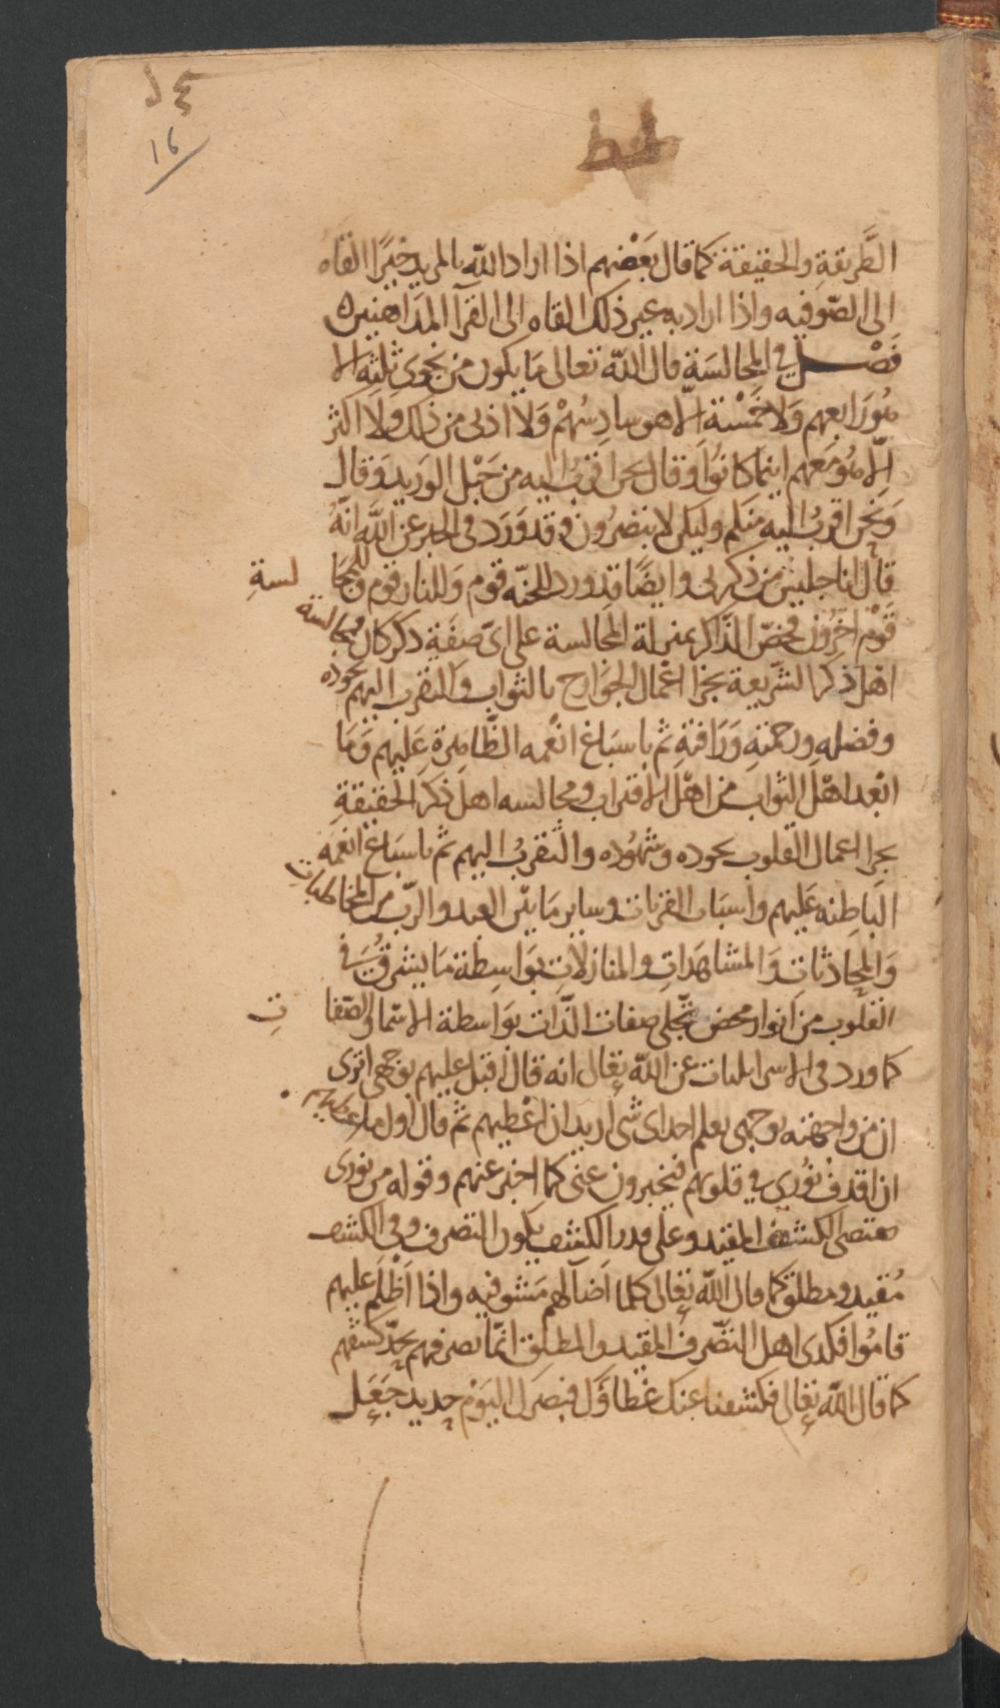 ١٤
16
الطَّريقةِ والحقيقة كما قال بَعْضهم اذا اراد اللّه بالمريد خيْرًا القاه
الى الصّوفيه واذا اراد به غير ذلك القاه الى القرآ المدَاهنين ه
فَصْــــل في المجالسَة قال اللّه تعالى مَا يكون من نجوى ثلثة الا
هُوَ رَابعهم وَلا خَمْسْة الّا هو سادِسُهمْ وَلا ادنى من ذلك ولا اكثر
الّا هُوَ مَعهم اينما كانوُا وَقال نحن اقربُ اليه من حَبْل الوَريد وَقال
وَنحن اقربُ اليه منكم ولكن لا يبصرُون وقد وَرَد فى الخبر عن اللّه انّهُ
قال انا جليسُ من ذكرنى وايضًا قد ورد للجنّه قوم وَللنار قوم وللمجا لسةِ
قَوْم آخرُون فخصّ الذاكر بمنزلة المجالسة على اىّ صفَةٍ ذكر كان فمجالسة
اهْل ذكر الشّريعة بجزا اعْمال الجوَارح بالثواب وَالتقرب اليهم بجوده
وفضله ورحمته وَرَافته ثم باسبَاغ انعُمه الظَّاهرة عَليهم وَمَا
ابْعد اهْل الثواب من اهْل الاقتراب ومجالسه اهل ذكر الحقيقةِ
بجزا اعمال القلوب بجوده وشهُوده والتقربُ اليهم ثم باسبَاغ انعمه
البَاطِنه عَليهم وأسبَاب القربات وساير مَا بيْن العبد والرّب من المخاطباتِ
وَالمحادثات وَالمشاهَدات والمنازلاتِ بوَاسِطة مَا يشرقُ في
القلوب من اَنوار محض تجّلى صفات الذّات بوَاسطة الاسما والصّفا تِ
كما ورد فى الاسرايليات عن اللّه تعالى انه قال اقبل عليهم بوَجهى اترى
ان من واجهته بوجهى يعلم احد اى شى اريد ان اعْطيهم ثم قال اول ما اعطيهم
ان اقذف نوُرى في قلوبهم فيخبرون عنى كما اخبر عنهم وقوله من نورى
مقتضى الكشف المقيّد وعلى قدر الكشف يكون التصرف وفى الكشف
مُقيد ومطلق كما قال اللّه تعالى كلما اَضآ لهم مَشوا فيه واذا اَظْلَم عَليهم
قامُوا فكذى اهل التصّرف المقيد والمطلق انمّا تصرفهم بحدّ كشفهم
كما قال اللّه تعالى فكشفنا عنك غطاؤك فبصرك اليَوْم حديد جَعَل